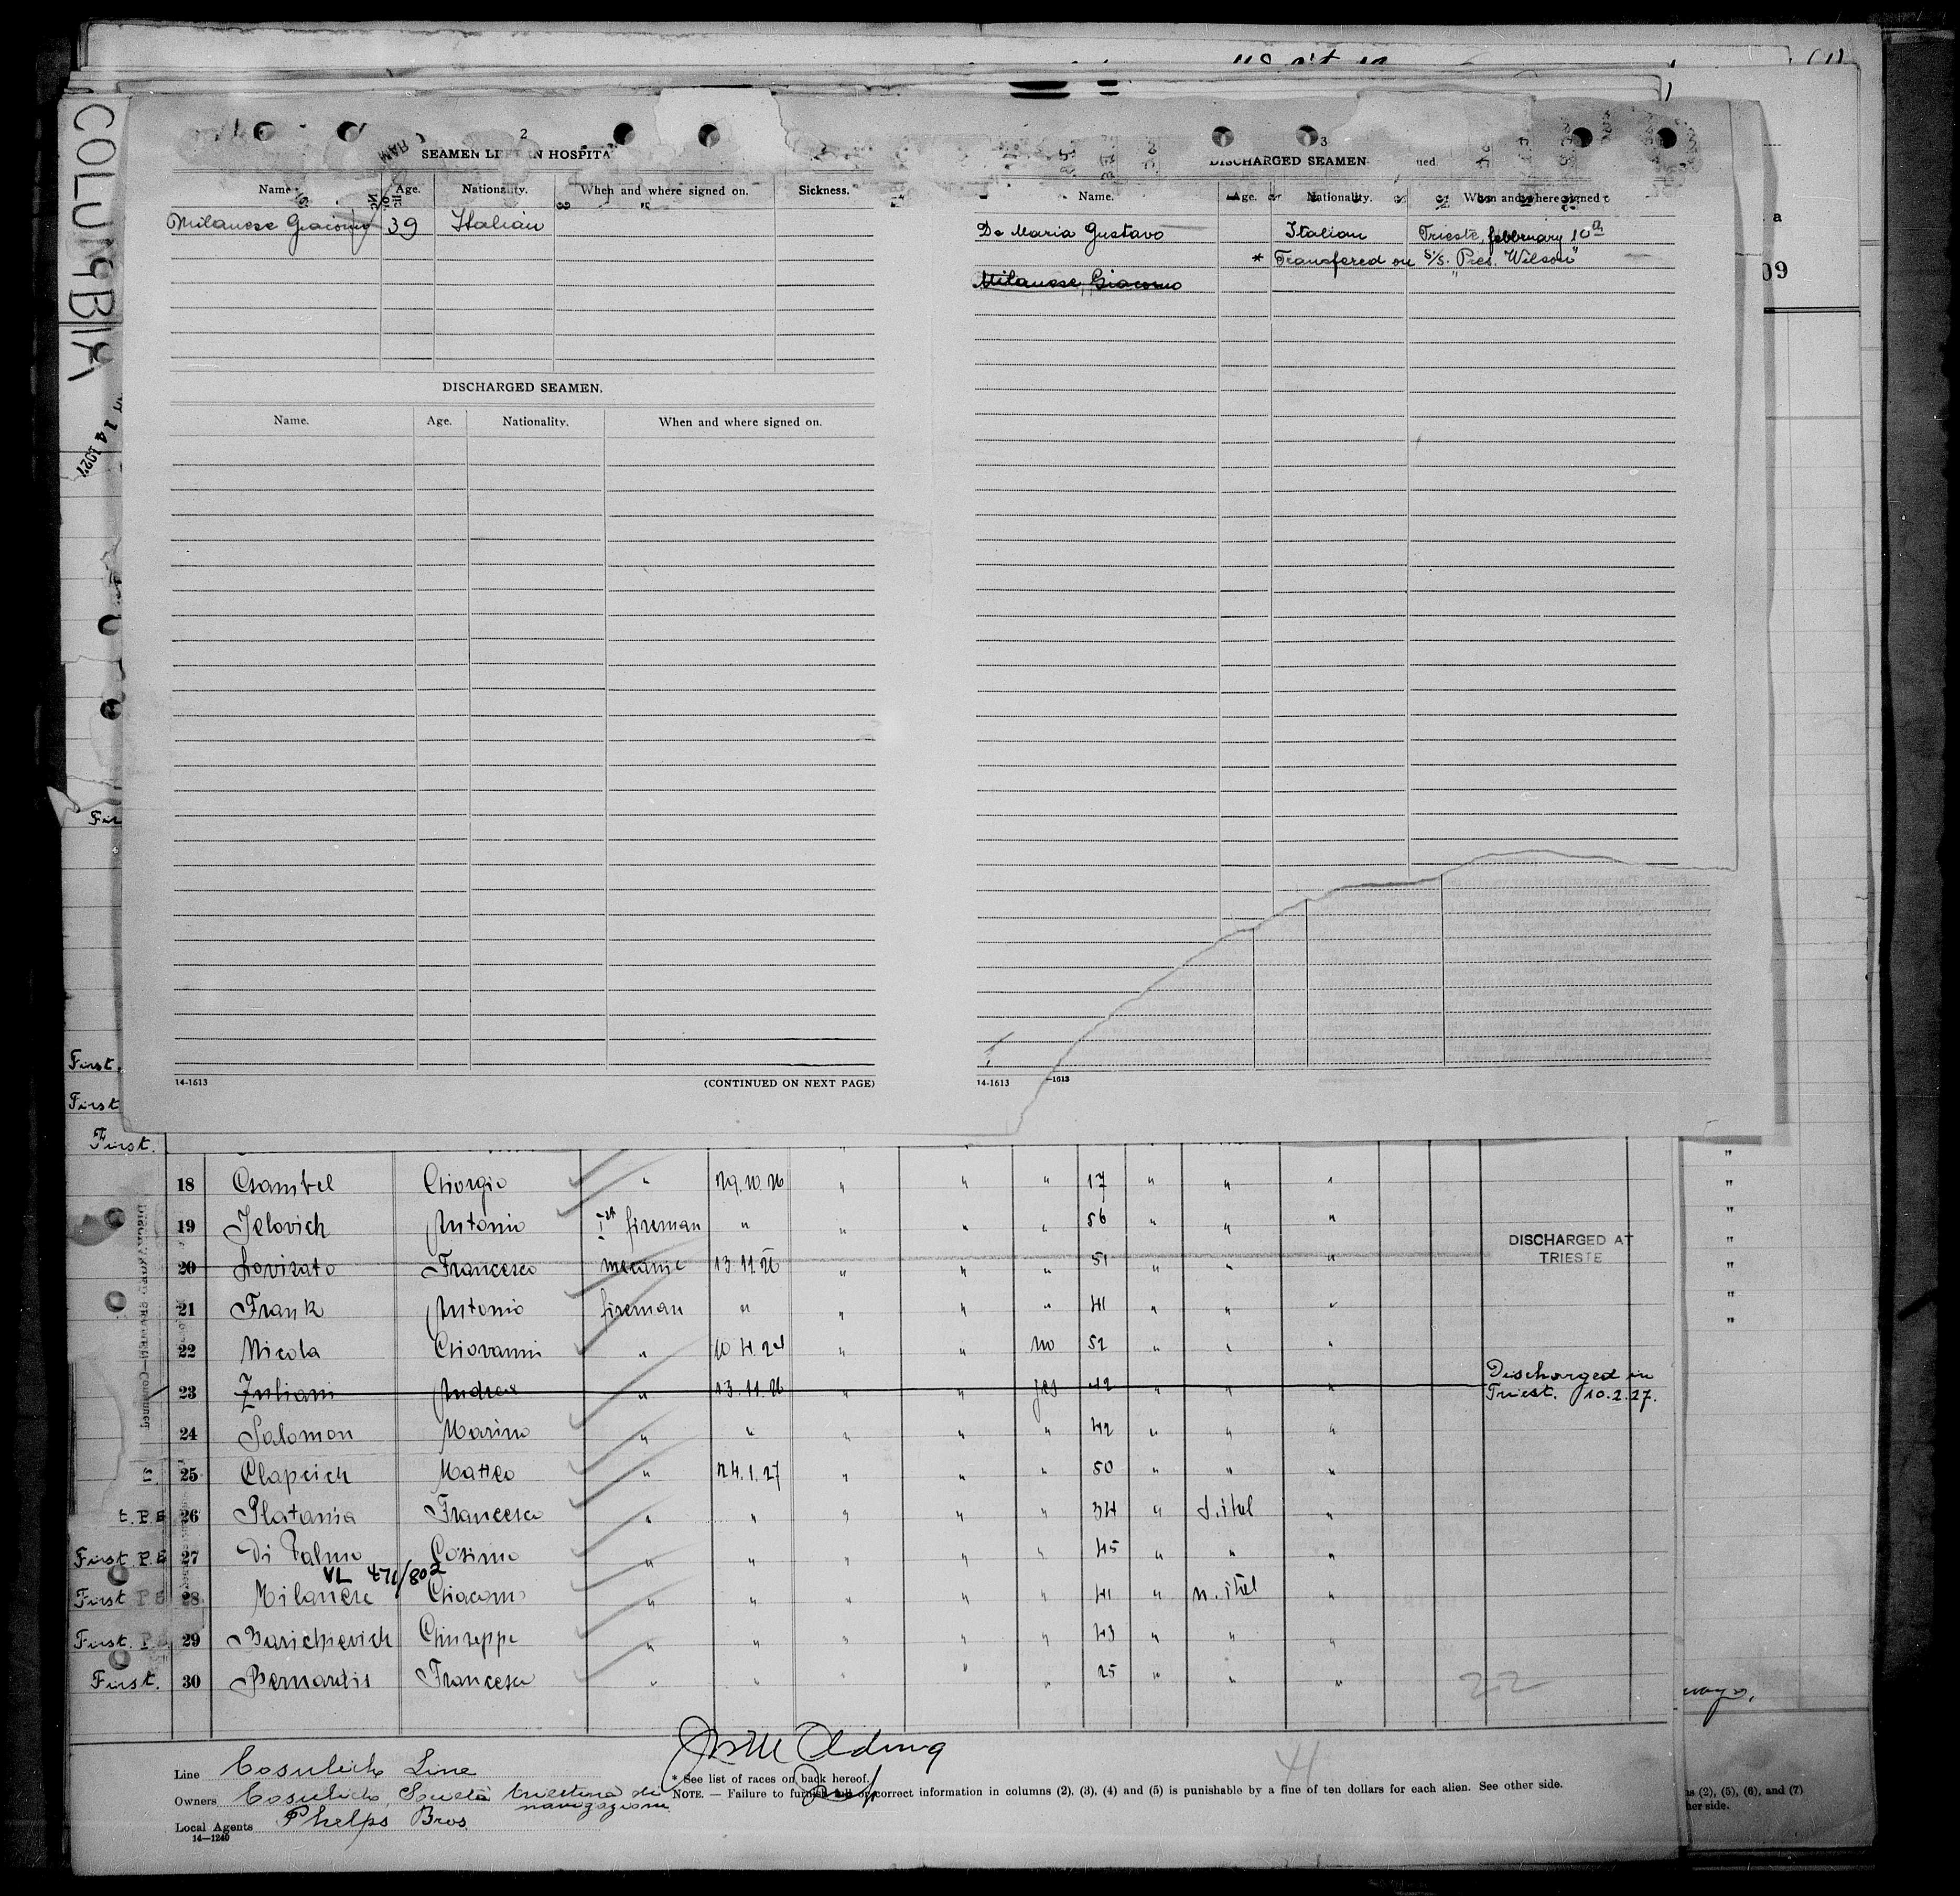 COLUMBIA
14 1927
2
SEAMEN LEFT IN HOSPITA
Name. Age. Nationality. When and where signed on. Sickness.
Milanese Giacomo 39 Italian
DISCHARGED SEAMEN.
Name. Age. Nationality. When and where signed on.
14-1613 (CONTINUED ON NEXT PAGE)
3
DISCHARGED SEAMEN ued.
Name. Age. Nationality. When and where signed
De Maria Gustavo Italian Trieste, febbruary 10th
* Transfered on S/S. "Pres. Wilson"
Milanese, Giacomo
14-1613 -1613
09
First.
First
First.
18 Giorgio " 29.10.26 " " " 17 " " "
19 Jelovich Antonio Ist fireman " " " " 56 " " "
20 Lovisato Francesco mecanic 13.11.26 " " " 51 " " " DISCHARGED AT TRIESTE
21 Frank Antonio fireman " " " " 41 " " "
22 Nicola Giovanni " 10.4.24 " " no 52 " " "
23 Zuliani Andrea " 13.11.26 " " yes 42 " " " Discharged in Triest. 10.2.27.
24 Salomon Marino " " " " " 42 " " "
25 Clapcich Matteo " 24.1.27 " " " 50 " " "
t. P.E 26 Platania Francesco " " " " " 34 " S.ital "
First. P.E 27 Di Palmo Cosimo " " " " " 45 " " "
VL 471/802
First P E 28 Milanese Giacomo " " " " " 41 " n.ital "
First. P. 29 Barichievich Giuseppe " " " " " 43 " " "
First. 30 Bernardis Francesco " " " " " 25 " " "
22
41
Line Cosulich Line
* See list of races on back hereof.
Owners Cosulich, Società triestina di navigazione
NOTE. — Failure to furnish full or correct information in columns (2), (3), (4) and (5) is punishable by a fine of ten dollars for each alien. See other side.
Local Agents Phelps Bros
14—1240
ns (2), (5), (6), and (7)
her side.